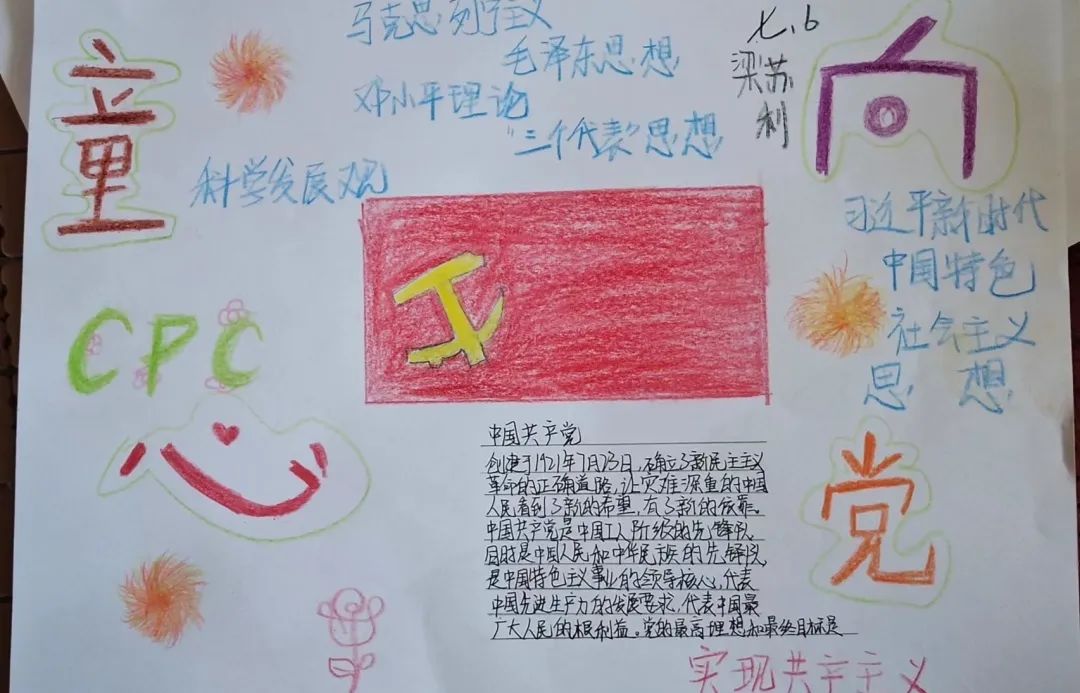 童
向
心
党
马克思列宁主义
毛泽东思想
邓小平理论
"三个代表"思想
科学发展观
七.6
梁苏
利
习近平新时代
中国特色
社会主义
思想
CPC
中国共产党
创建于1921年7月23日,确立了新民主主义
革命的正确道路,让灾难深重的中国
人民看到了新的希望,有了新的依靠。
中国共产党是中国工人阶级的先锋队
同时是中国人民和中华民族的先锋队,
是中国特色主义事业的领导核心,代表
中国先进生产力的发展要求,代表中国最
广大人民的根利益。党的最高理想和最终目标是
实现共产主义